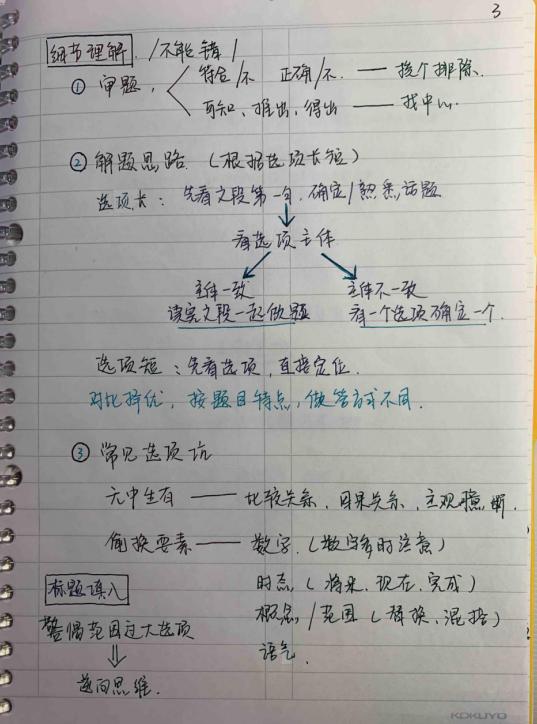 3
细节理解 /不能错/
① 审题, 符合/不 正确/不. —— 挨个排除.
可知、推出、得出 —— 找中心.
② 解题思路.（根据选项长短）
选项长：先看文段第一句.确定/熟悉话题
看选项主体
主体一致 主体不一致
读完文段一起做题 看一个选项确定一个.
选项短：先看选项，直接定位.
对比择优，按题目特点，做答方式不同.
③ 常见选项坑
无中生有 —— 比较关系、因果关系、主观臆断.
偷换要素 —— 数字.（数字多时注意）
时态（将来、现在、完成）
概念/范围（替换、混搭）
语气.
标题填入
警惕范围过大选项
逆向思维.
KOKUYO